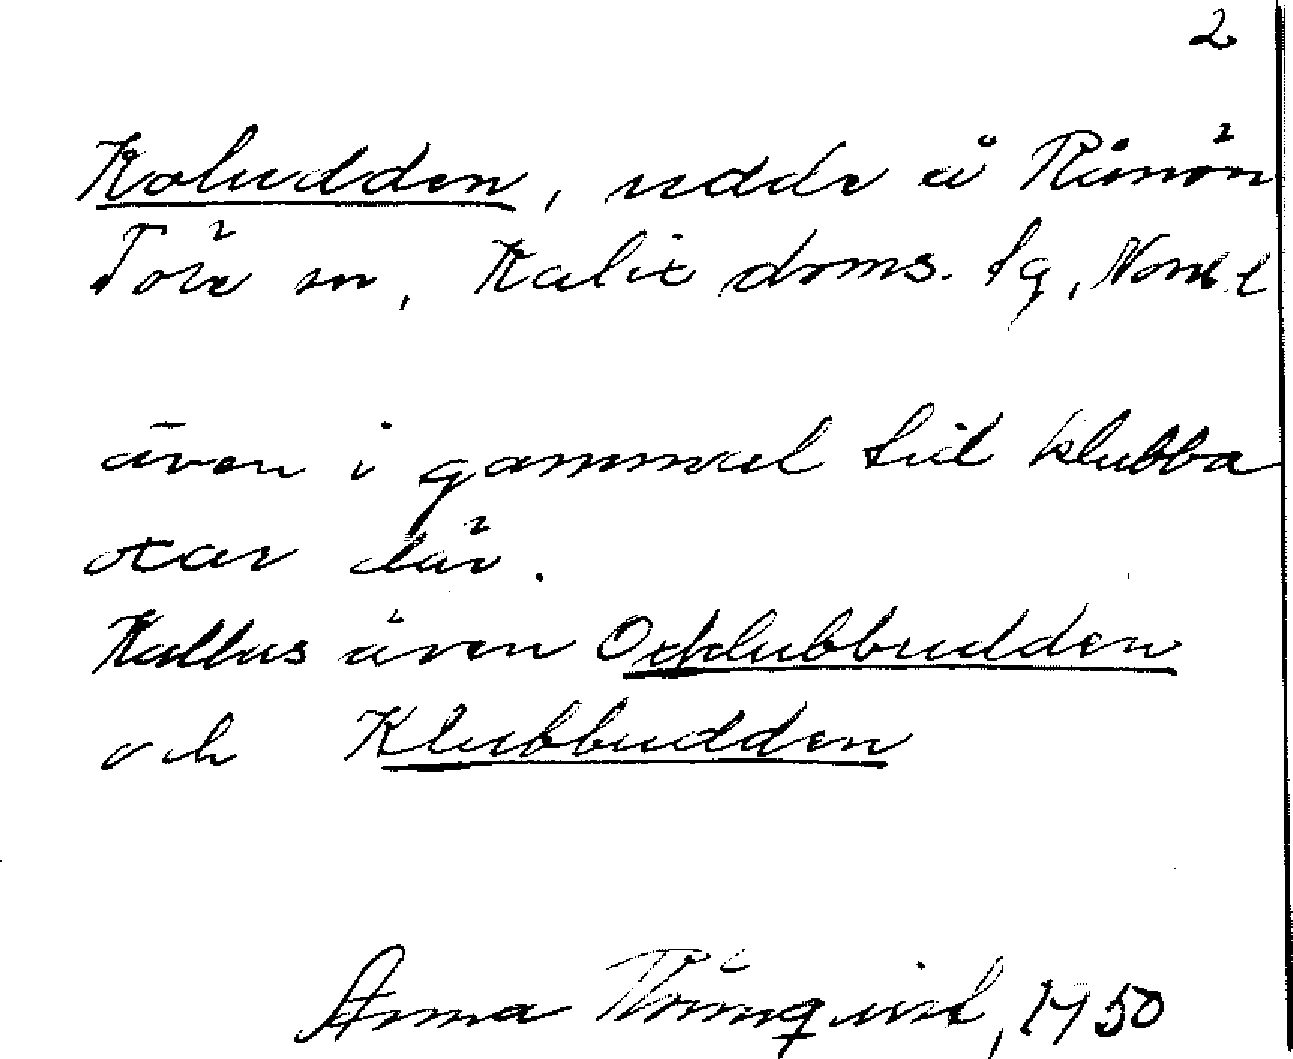 2
Koludden, udde å Rånön
Töre sn, Kalix doms. tg, Norrb. l
även i gammal tid klubba
oxar där.
Kallas även Oxklubbudden
och Klubbudden
Anna Rönnqvist, 1950